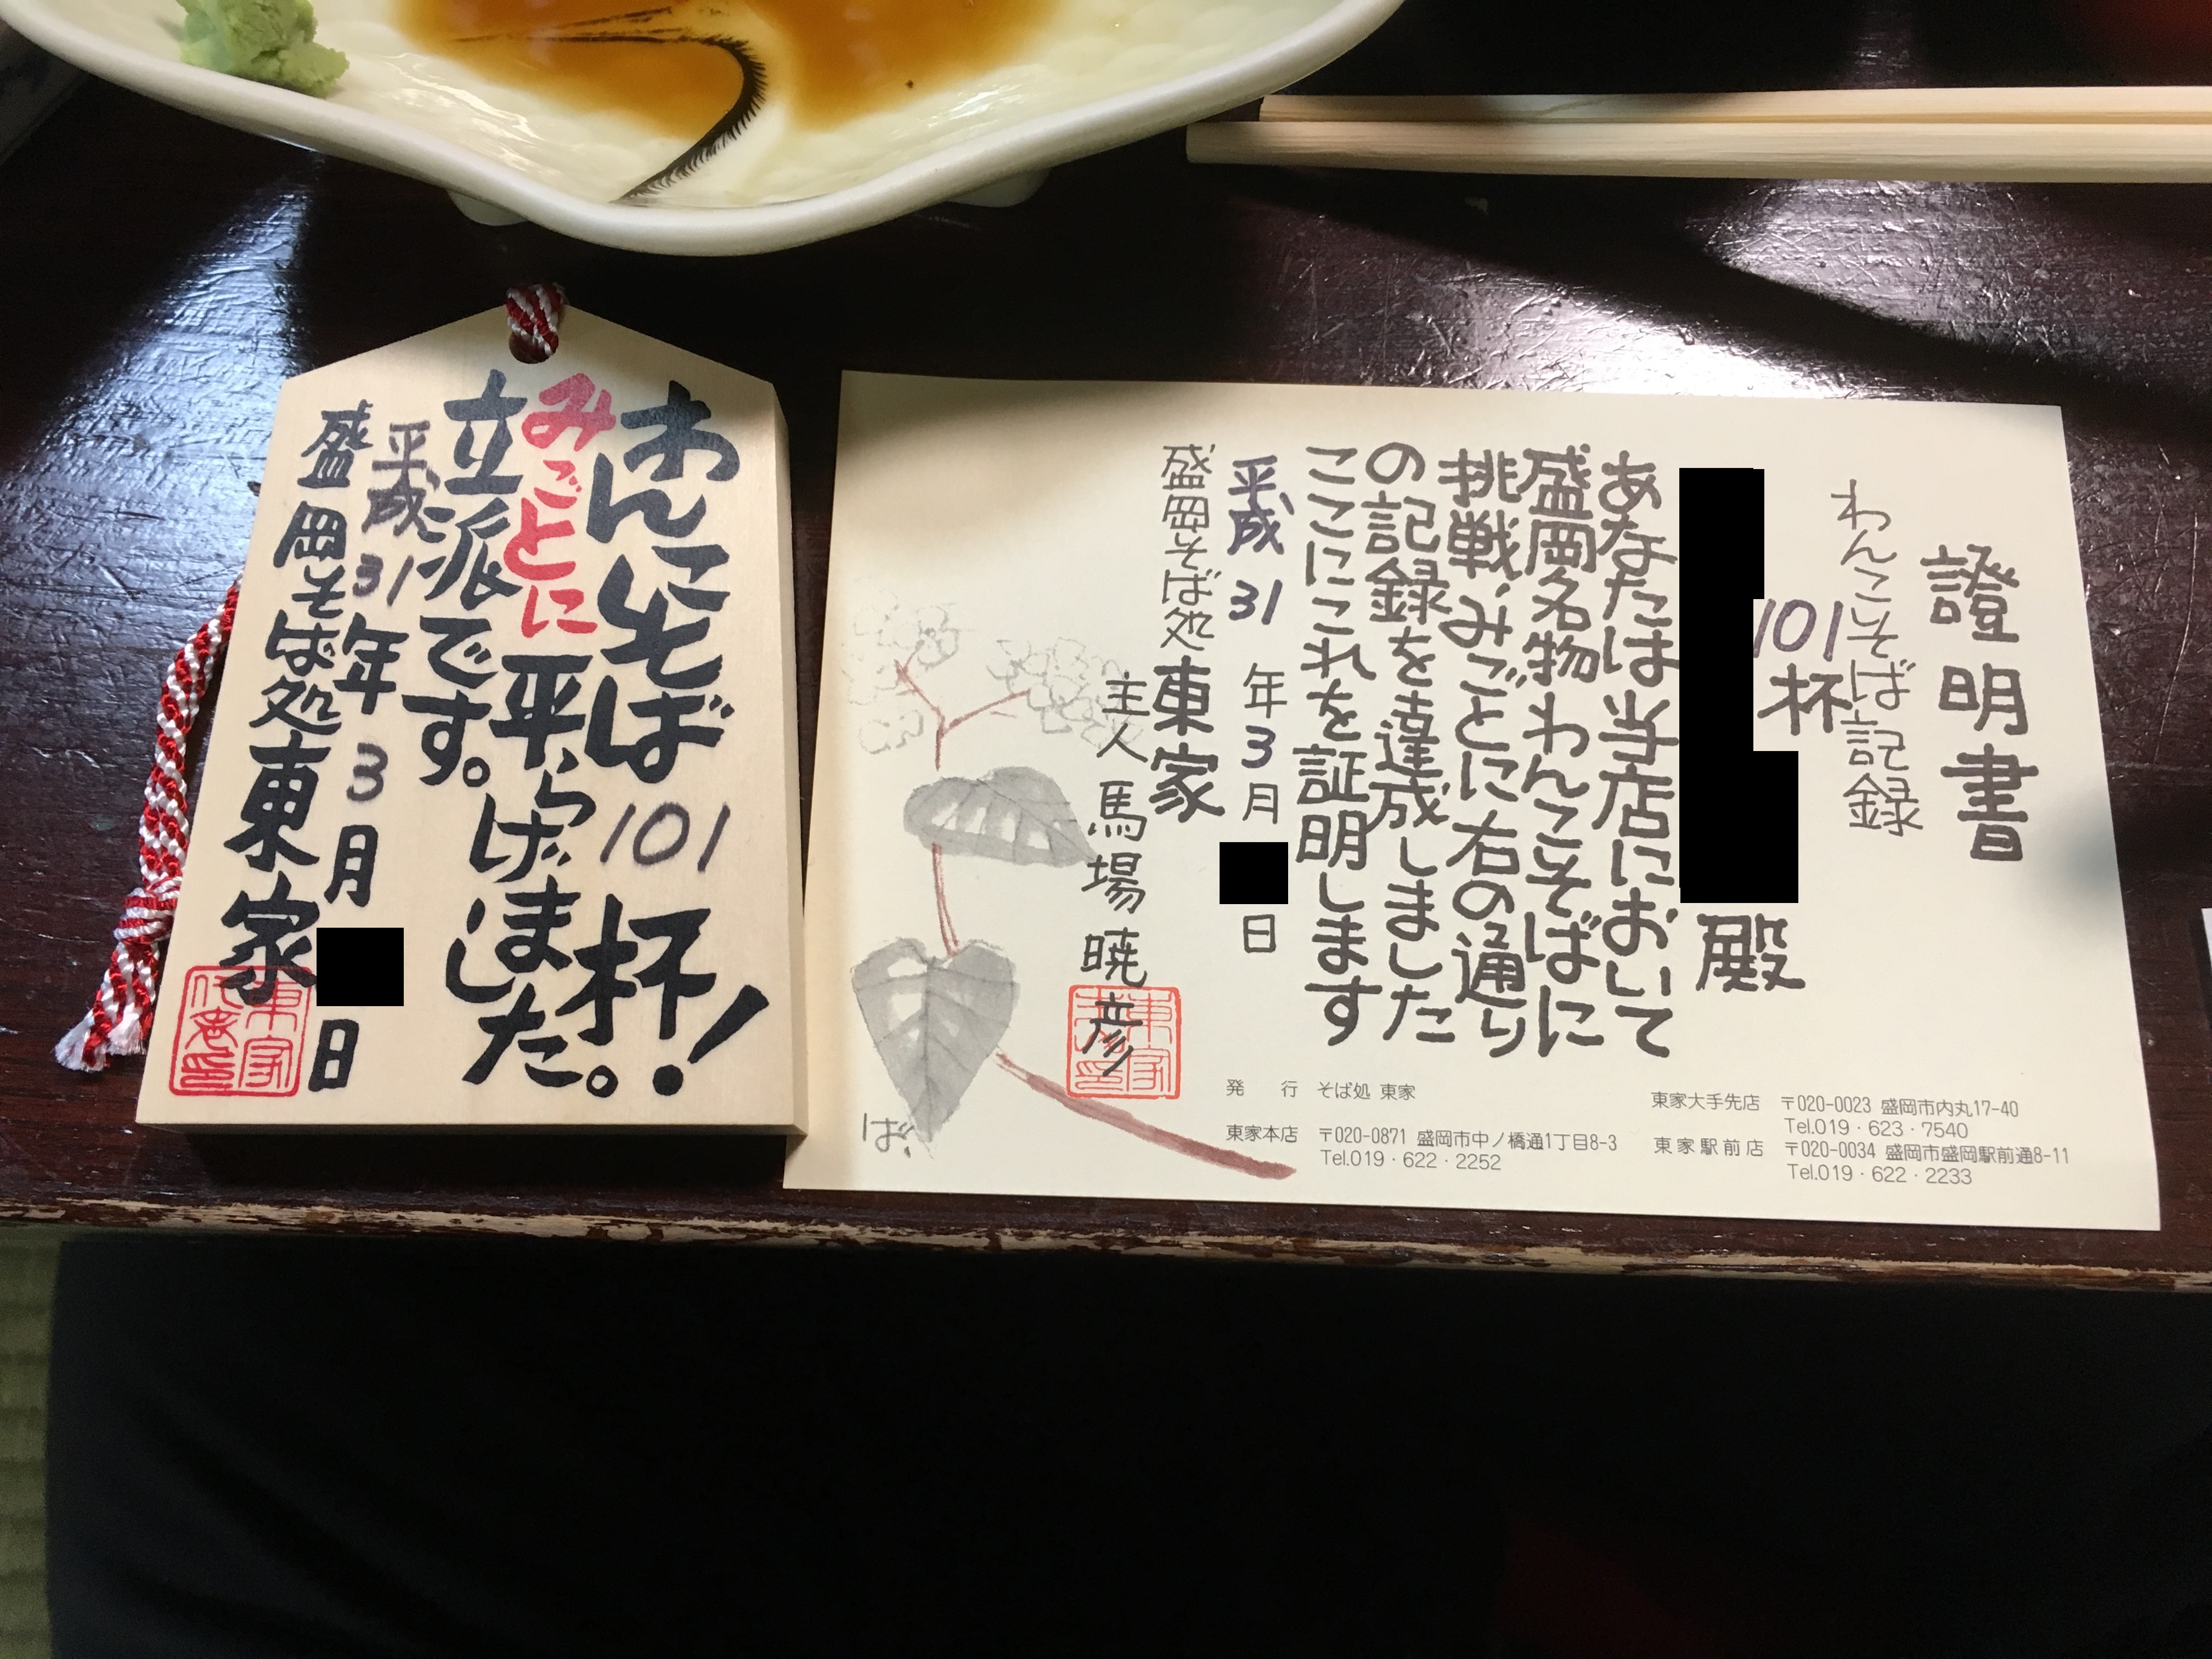 わんこそば101杯!
みごとに平らげました。
立派です。
平成31年3月
日
盛岡そば処東家
證明書
わんこそば記録
101杯
殿
あなたは当店において
盛岡名物わんこそばに
挑戦、みごとに右の通り
の記録を達成しました
ここにこれを証明します
平成31年3月
日
盛岡そば処東家
主人 馬場暁彦
ば
発 行 そば処 東家
東家本店 〒020-0871 盛岡市中ノ橋通1丁目8-3
Tel.019・622・2252
東家大手先店 〒020-0023 盛岡市内丸17-40
Tel.019・623・7540
東家駅前店 〒020-0034 盛岡市盛岡駅前通8-11
Tel.019・622・2233